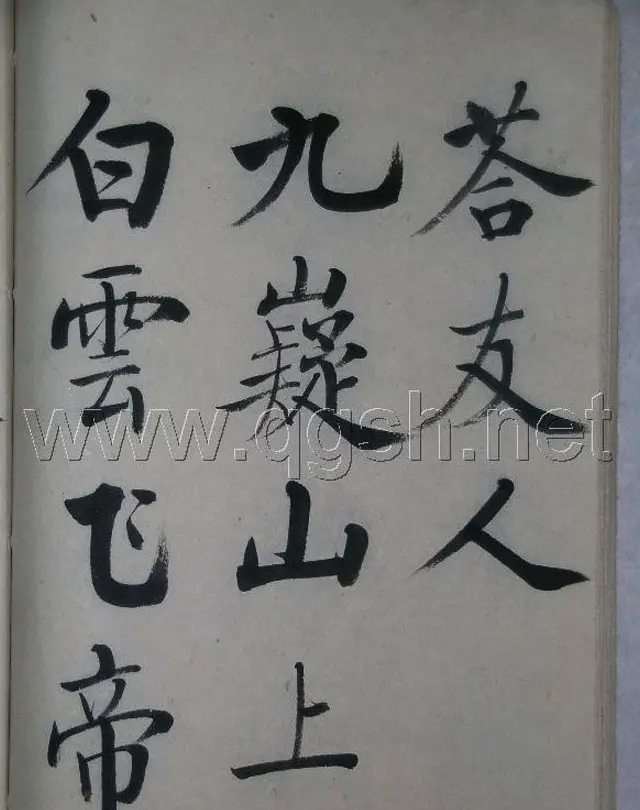 荅友人
九嶷山上
白雲飞帝
www.qgsh.net